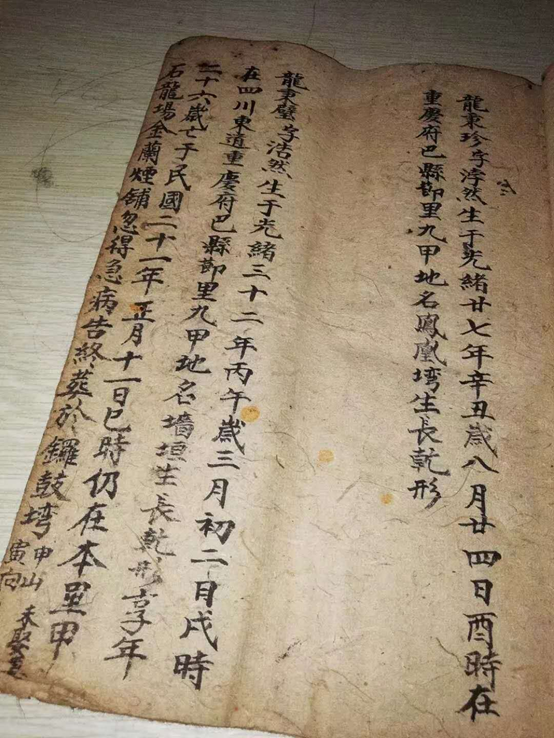 龍秉珍字淳然生于光緒廿七年辛丑歲八月廿四日酉時在
重慶府巴縣節里九甲地名鳳凰塆生長乾形
龍秉璧字浩然生于光緒三十二年丙午歲三月初二日戌時
在四川東道重慶府巴縣節里九甲地名墻垣生長乾形享年
二十六歲亡于民國二十一年正月十一日巳時仍在本里甲
石龍場金蘭煙舖忽得急病告終葬於鑼鼓塆申山
寅向
未娶妻